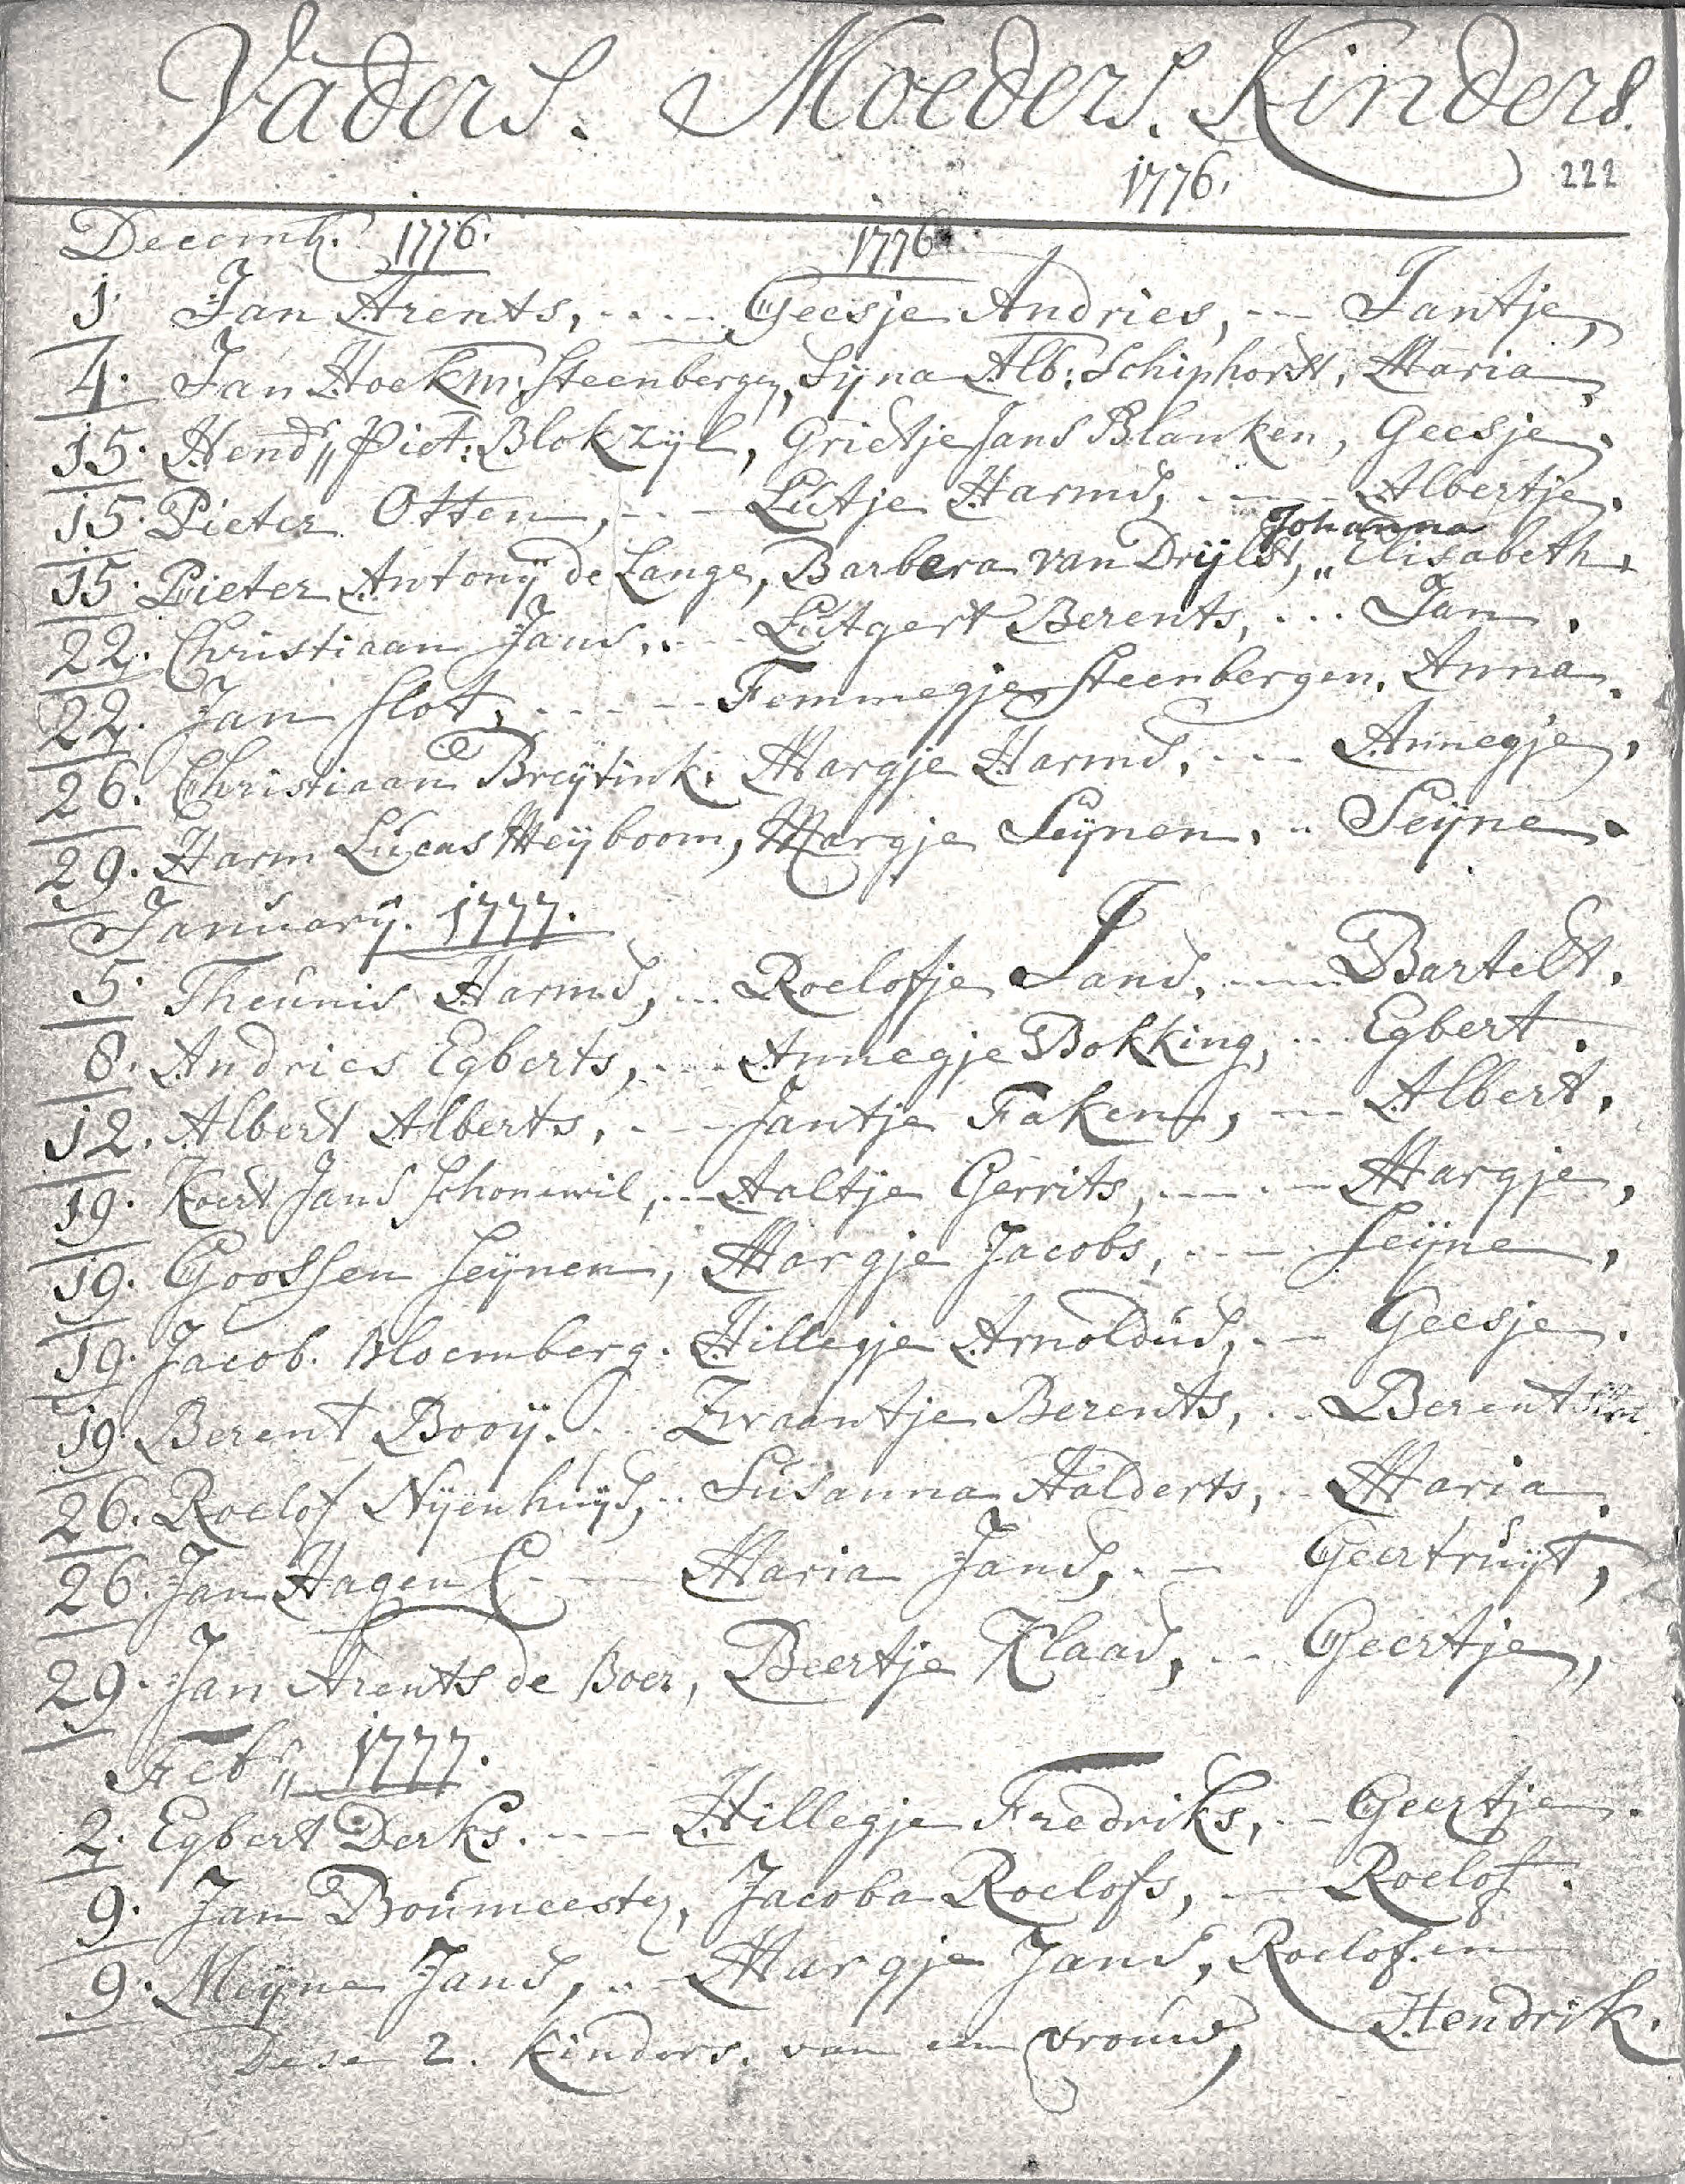 Vaders. Moeders. Kinders.
1776. 222
Decemb. 1776. 1776
1 Jan Arents, Geesje Andries, Jantje,
4. Jan Hoekm: Steenbergen, Syna Alb: Schiphorst, Maria,
15. Hendr,, Piet: Blokzÿl, Grietje Jans Blanken, Geesje.
15. Pieter Otten, Lútje Harms, Albertje.
Johanna
15. Pieter Antonÿ de Lange, Barbera van Drÿlst, ,, Elisabeth.
22. Christiaan Jans, Lútgert Berents, Jan.
22. Jan Slot, Femmegje Steenbergen, Anna.
26. Christiaan Breÿtink, Margje Harms, Annegje,
29. Harm Lúcas Meÿboom, Margje Seÿnen, Seÿne.
Janúarÿ. 1777.
5. Theúnis Harms, Roelofje Jans, Bartelt.
8. Andries Egberts, Annegje Bokking, Egbert.
12. Albert Alberts, Jantje Faken, Albert,
19. Koert Jans Schonewil, Aaltje Gerrits, Margje,
19. Goossen Seÿnen, Margje Jacobs, Seÿne,
19. Jacob. Bloemberg. Hillegje Arnoldús, Geesje.
19. Berent Booÿ. Zwaantje Berents, Berent
26. Roelof Nÿenhuÿs, Súsanna Halderts, Maria,
26. Jan Hagen C Maria Jans, Geertrúÿt,
29. Jan Arents de Boer, Beertje Klaas, Geertje,
Febr,, 1777.
2. Egbert Derks. Hillegje Fredriks, Geertje.
9. Jan Boúmeester, Jacoba Roelofs, Roelof.
9. Meÿne Jans, Margje Jans, Roelof. en
Hendrik.
Dese 2. kinders. van een vroúw,